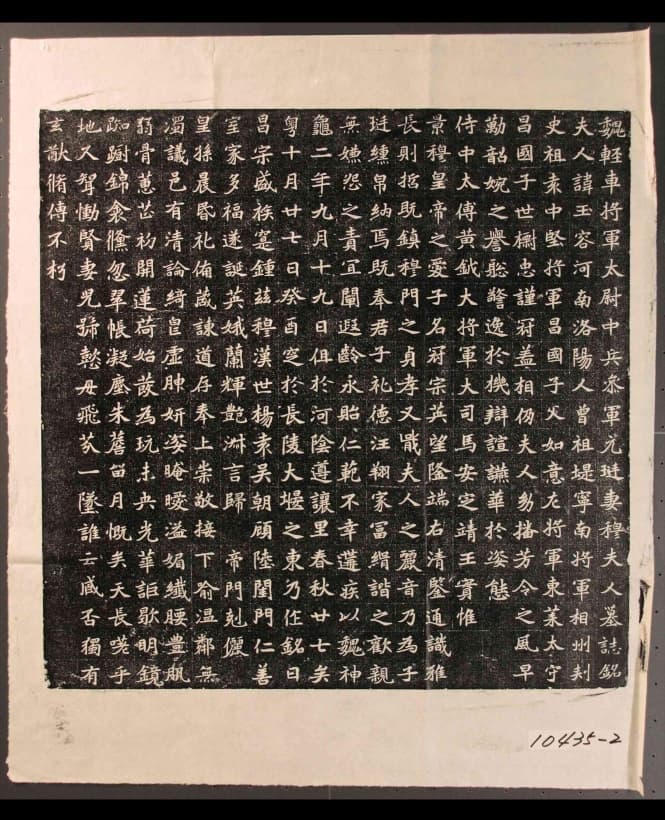 魏輕車將軍太尉中兵參軍元珽妻穆夫人墓誌銘
夫人諱玉容河南洛陽人曾祖堤寧南將軍相州刾
史祖袁中堅將軍昌國子父如意左將軍東萊太守
昌國子世樹忠謹冠盖相仍夫人㓜播芳令之風早
勤韶婉之譽聡警逸於機辯諠讌華於姿態
侍中太傅黃鉞大將軍大司馬安定靖王實惟
景穆皇帝之愛子名冠宗英望隆端右清鑒通識雅
長則哲既鎮穆門之貞孝又戢夫人之麗音乃為子
珽纁帛納焉既奉君子礼德汪翔家冨緝諧之歡親
無嫌怨之責宜闡遐齡永貽仁範不幸遘疾以魏神
龜二年九月十九日俎於河陰遵讓里春秋廿七矣
粵十月廿七日癸酉窆於長陵大堰之東乃作銘曰
昌宗盛族寔鍾茲穆漢世楊袁吴朝顧陸閨門仁善
室家多福遂誕英娥蘭輝艷淋言歸 帝門剋儷
皇孫晨昏礼侑葴諫道存奉上崇敬接下喻温鄰無
濁議邑有清論綺皇虛肿妍姿晻曖溢媚纖腰豊肌
弱骨蕙芯初開蓮荷始蕟為玩未央光華詎歇明鏡
踟蹰錦衾儵忽翠帳凝塵朱簷留月慨矣天長嗟乎
地久聟慟賢妻兒號慜母飛芥一墜誰云臧否獨有
玄猷脩傳不朽
10435-2